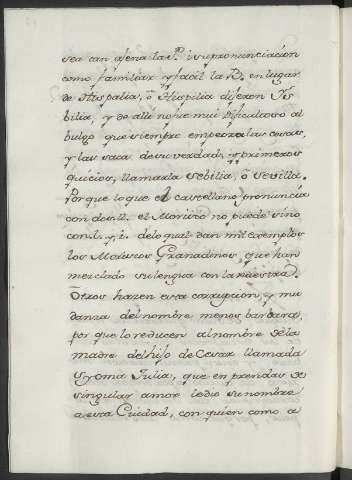 sea tan agena la P. i su pronunciacion
como familiar y facil la B. en lugar
de Hispalia, ò Hispilia dijeron Ys
bilia, y de alli no fue mui dificultoso al
bulgo que siempre empeora las cosas,
y las saca de su verdad, y primeros
quicios, llamarla Sebilia, ò Sevilla.
Porque lo que el castellano pronuncia
con dos ll. el Morisco no puede sino
con l. y i. de lo qual dan mil exemplos
los Moriscos Granadinos, que han
mezclado su lengua con la nuestra.
Otros hazen esta corrupcion, y mu
danza del nombre menos barbara,
por que lo reducen al nombre de la
madre del hijo de Cesar llamada
Julia, que en prendas de
singular amor le dio su nombre
a esta Ciudad, con quien como a